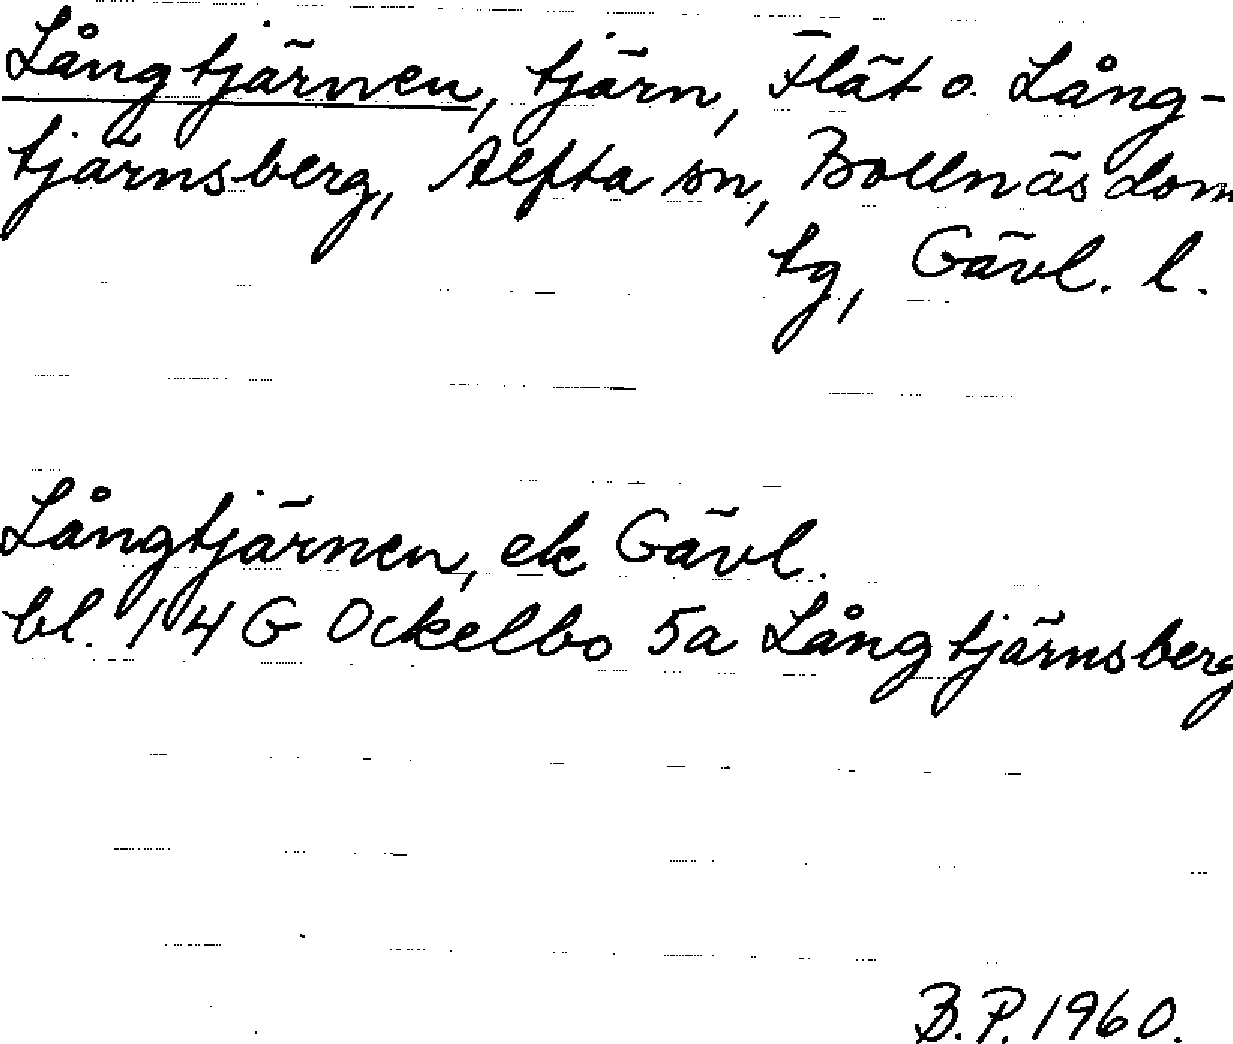 Långtjärnen, tjärn, Flät o. Lång-
tjärnsberg, Alfta sn, Bollnäs dom
tg, Gävl. l.
Långtjärnen, ek Gävl.
bl. 14 G Ockelbo 5a Långtjärnsberg
B.P. 1960.